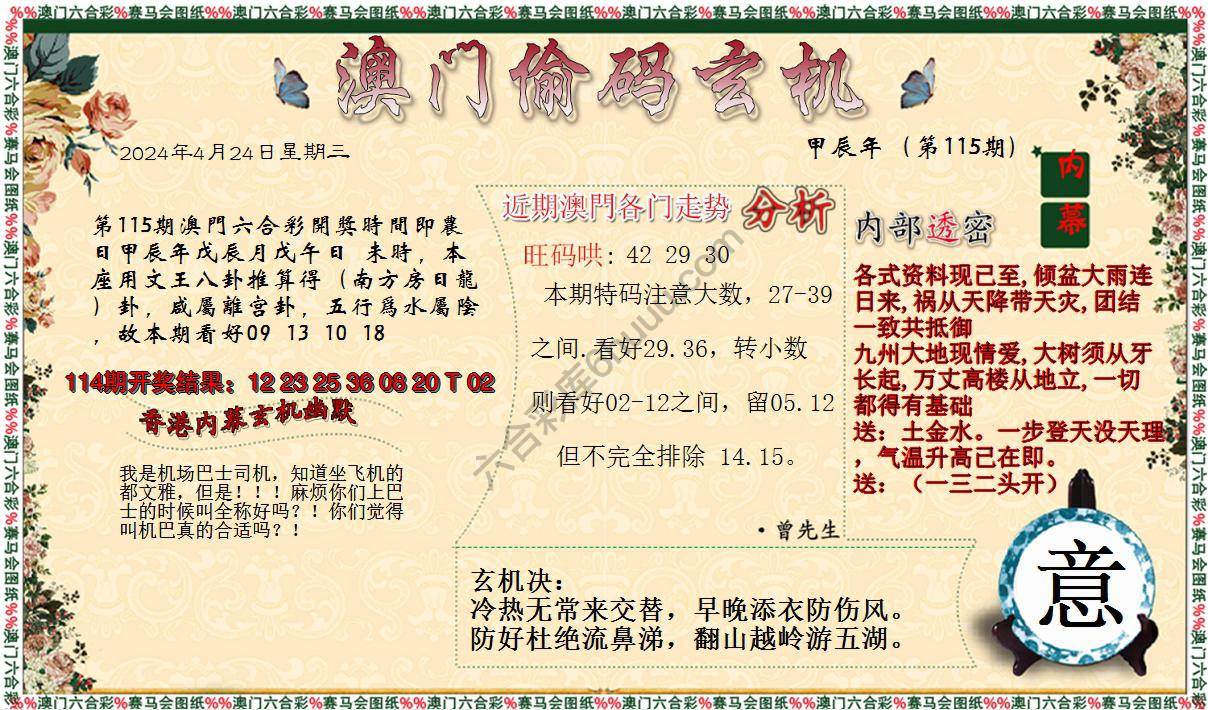 %%澳门六合彩%赛马会图纸%%澳门六合彩%赛马会图纸%%澳门六合彩%赛马会图纸%%澳门六合彩%赛马会图纸%%澳门六合彩%赛马会图纸%%澳门六合彩%赛马会图纸%%
澳门偷码玄机
2024年4月24日星期三
甲辰年（第115期）
内
幕
第115期澳門六合彩開獎時間即農
日甲辰年戊辰月戊午日 未時，本
座用文王八卦推算得（南方房日龍
）卦，咸屬離宫卦，五行爲水屬陰
，故本期看好09 13 10 18
114期开奖结果：12 23 25 36 08 20 T 02
香港内幕玄机幽默
我是机场巴士司机，知道坐飞机的
都文雅，但是！！！麻烦你们上巴
士的时候叫全称好吗？！你们觉得
叫机巴真的合适吗？！
近期澳門各门走势 分析
旺码哄: 42 29 30
本期特码注意大数，27-39
之间.看好29.36，转小数
则看好02-12之间，留05.12
但不完全排除 14.15。
·曾先生
内部透密
各式资料现已至,倾盆大雨连
日来,祸从天降带天灾,团结
一致共抵御
九州大地现情爱,大树须从牙
长起,万丈高楼从地立,一切
都得有基础
送：土金水。一步登天没天理
，气温升高已在即。
送：（一三二头开）
玄机决：
冷热无常来交替，早晚添衣防伤风。
防好杜绝流鼻涕，翻山越岭游五湖。
意
%%澳门六合彩%赛马会图纸%%澳门六合彩%赛马会图纸%%澳门六合彩%赛马会图纸%%澳门六合彩%赛马会图纸%%澳门六合彩%赛马会图纸%%澳门六合彩%赛马会图纸%%